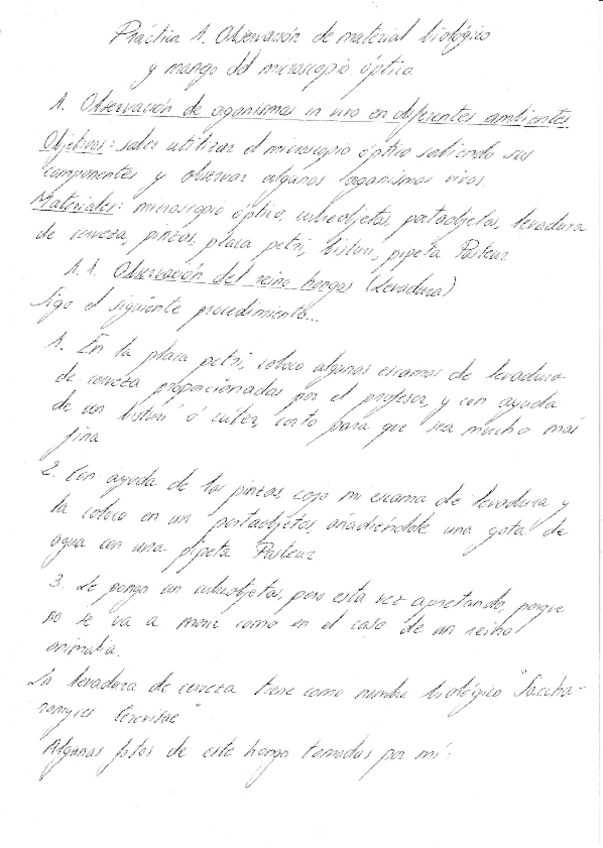 Práctica 1. Observación de material biológico
y manejo del microscopio óptico.
1. Observación de oganismos in vivo en diferentes ambientes
Objetivos: saber utilizar el microscopio óptico sabiendo sus
componentes y observar algunos organismos vivos.
Materiales: microscopio óptico, cubreobjetos, portaobjetos, levadura
de cerveza, pinzas, placa petri, bisturí, pipeta Pasteur
1.1. Observación del reino hongos (Levadura)
Sigo el siguiente procedimiento...
1. En la placa petri, coloco algunas escamas de levadura
de cerveza proporcionadas por el profesor, y con ayuda
de un bisturí ó cúter, corto para que sea mucho más
fina
2. Con ayuda de las pinzas, cojo mi escama de levadura y
la coloco en un portaobjetos, añadiéndole una gota de
agua con una pipeta Pasteur
3. Le pongo un cubreobjetos, pero esta vez apretando, porque
no se va a mover como en el caso de un reino
animalia.
La levadura de cerveza tiene como nombre biológico "Saccha-
romyces Cerevisae"
Algunas fotos de este hongo tomadas por mí: